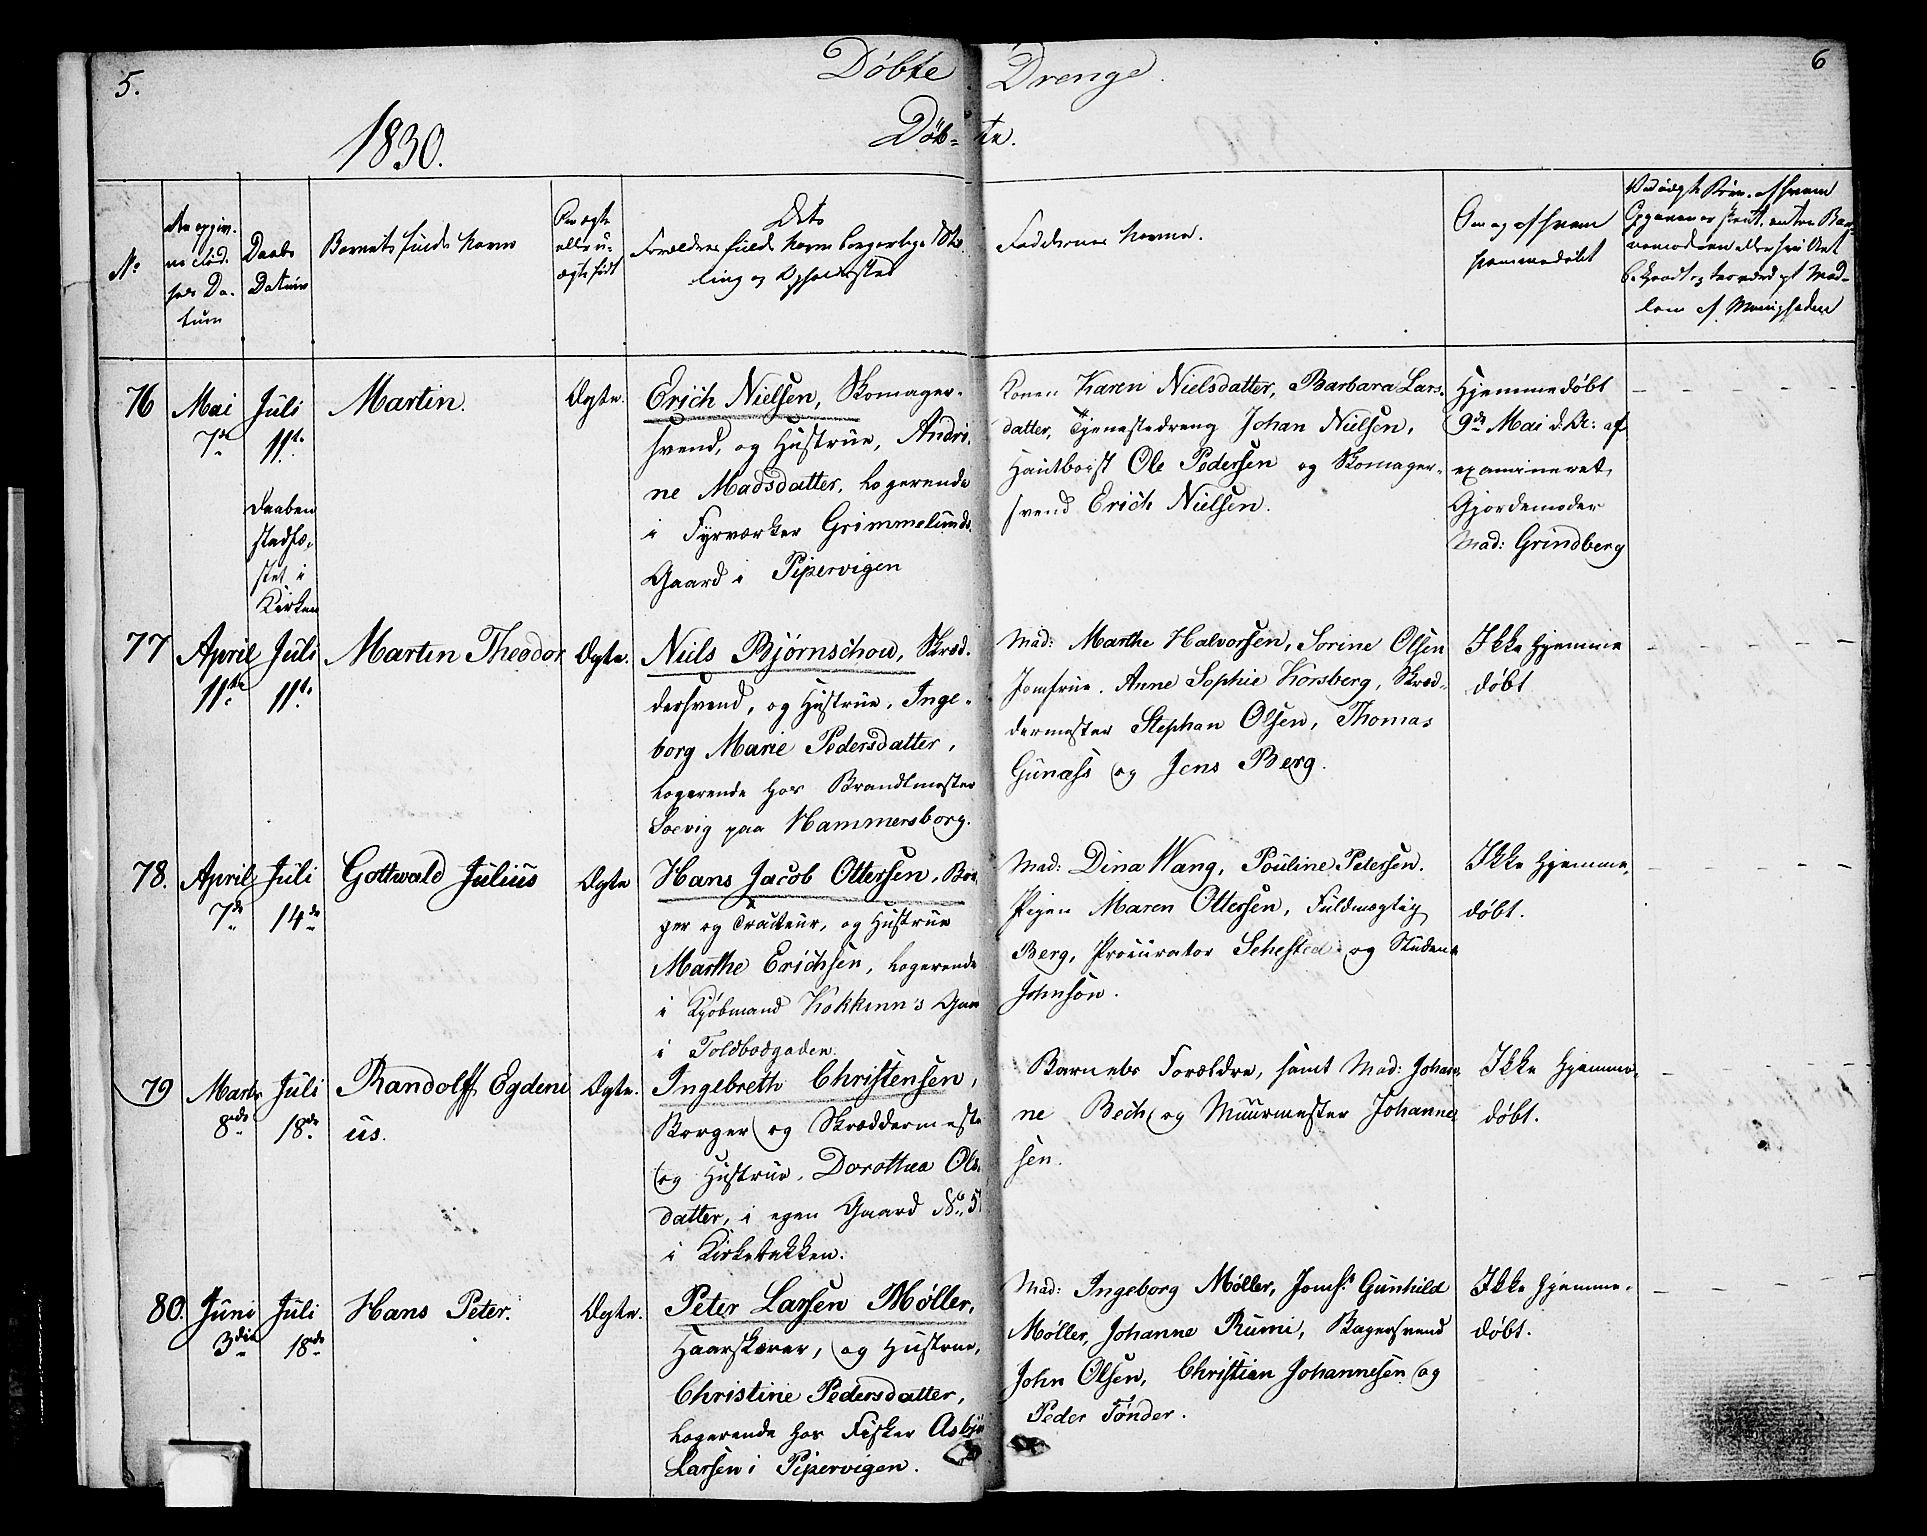 5.
Döbte Drenge.
6
1830.
Döb- te.
No
Den opgiv-
ne Fød-
sels Da-
tum
Daabs
Datum
Barnets fulde Navn
Om ægte
eller u-
ægte født
Dets
Forældres fulde Navn borgerlige Stil-
ling og Opholdssted
Faddernes Navne.
Om og af hvem
hjemmedøbt
76
Mai
7de
Juli
11te
Daaben
stadfæ-
stet i
Kirken
Martin.
Ægte.
Erich Nielsen, Skomager-
svend, og Hustrue, Andri-
ne Madsdatter, logerende
i Fyrværker Grimmelunds
Gaard i Pipervigen
Konen Karen Nielsdatter, Barbara Lars-
datter, Tjenestedreng Johan Nielsen,
Hautboist Ole Pedersen og Skomager-
svend Erich Nielsen.
Hjemmedøbt
9de Mai d. A. af
examineret
Gjordemoder
Mad: Grindberg
77
April
11te
Juli
11te
Martin Theodor
Ægte.
Niels Bjørnschou, Skræd-
dersvend, og Hustrue, Inge-
borg Marie Pedersdatter,
logerende hos Brandtmester
Soevig paa Hammersborg.
Mad: Marthe Halvorsen, Sorine Olsen
Jomfrue Anne Sophie Korsberg, Skræd-
dermester Stephan Olsen, Thomas
Gunass og Jens Berg.
Ikke hjemme
døbt
78.
April
7de
Juli
14de
Gottwald Julius
Ægte
Hans Jacob Ottersen, Bor-
ger og Traiteur, og Hustrue
Marthe Erichsen, logerende
i Kjøbmand Kokkinn's Gaar
i Toldbodgaden.
Mad: Dina Wang, Pouline Petersen.
Pigen Maren Ottersen, Fuldmægtig
Berg, Procurator Sehested og Student
Johnson.
Ikke hjemme-
døbt.
79
Marts
8de
Juli
18de
Randolff Egdeni
us.
Ægte.
Ingebreth Christensen,
Borger og Skræddermeste
og Hustrue, Dorothea Ols-
datter, i egen Gaard No 5
i Kirkebakken.
Barnets Forældre, samt Mad: Johan-
ne Bech og Muurmester Johanne-
sen.
Ikke hjemme-
døbt.
80.
Juni
3die
Juli
18de
Hans Peter.
Ægte.
Peter Larsen Møller,
Haarskærer, og Hustrue,
Christine Pedersdatter,
logerende hos Fisker Asbjø
Larsen i Pipervigen.
Mad: Ingeborg Møller, Jomfr Gunhild
Møller, Johanne Rumi, Bagersvend
John Olsen, Christian Johannesen og
Peder Tønder.
Ikke hjemme-
døbt.